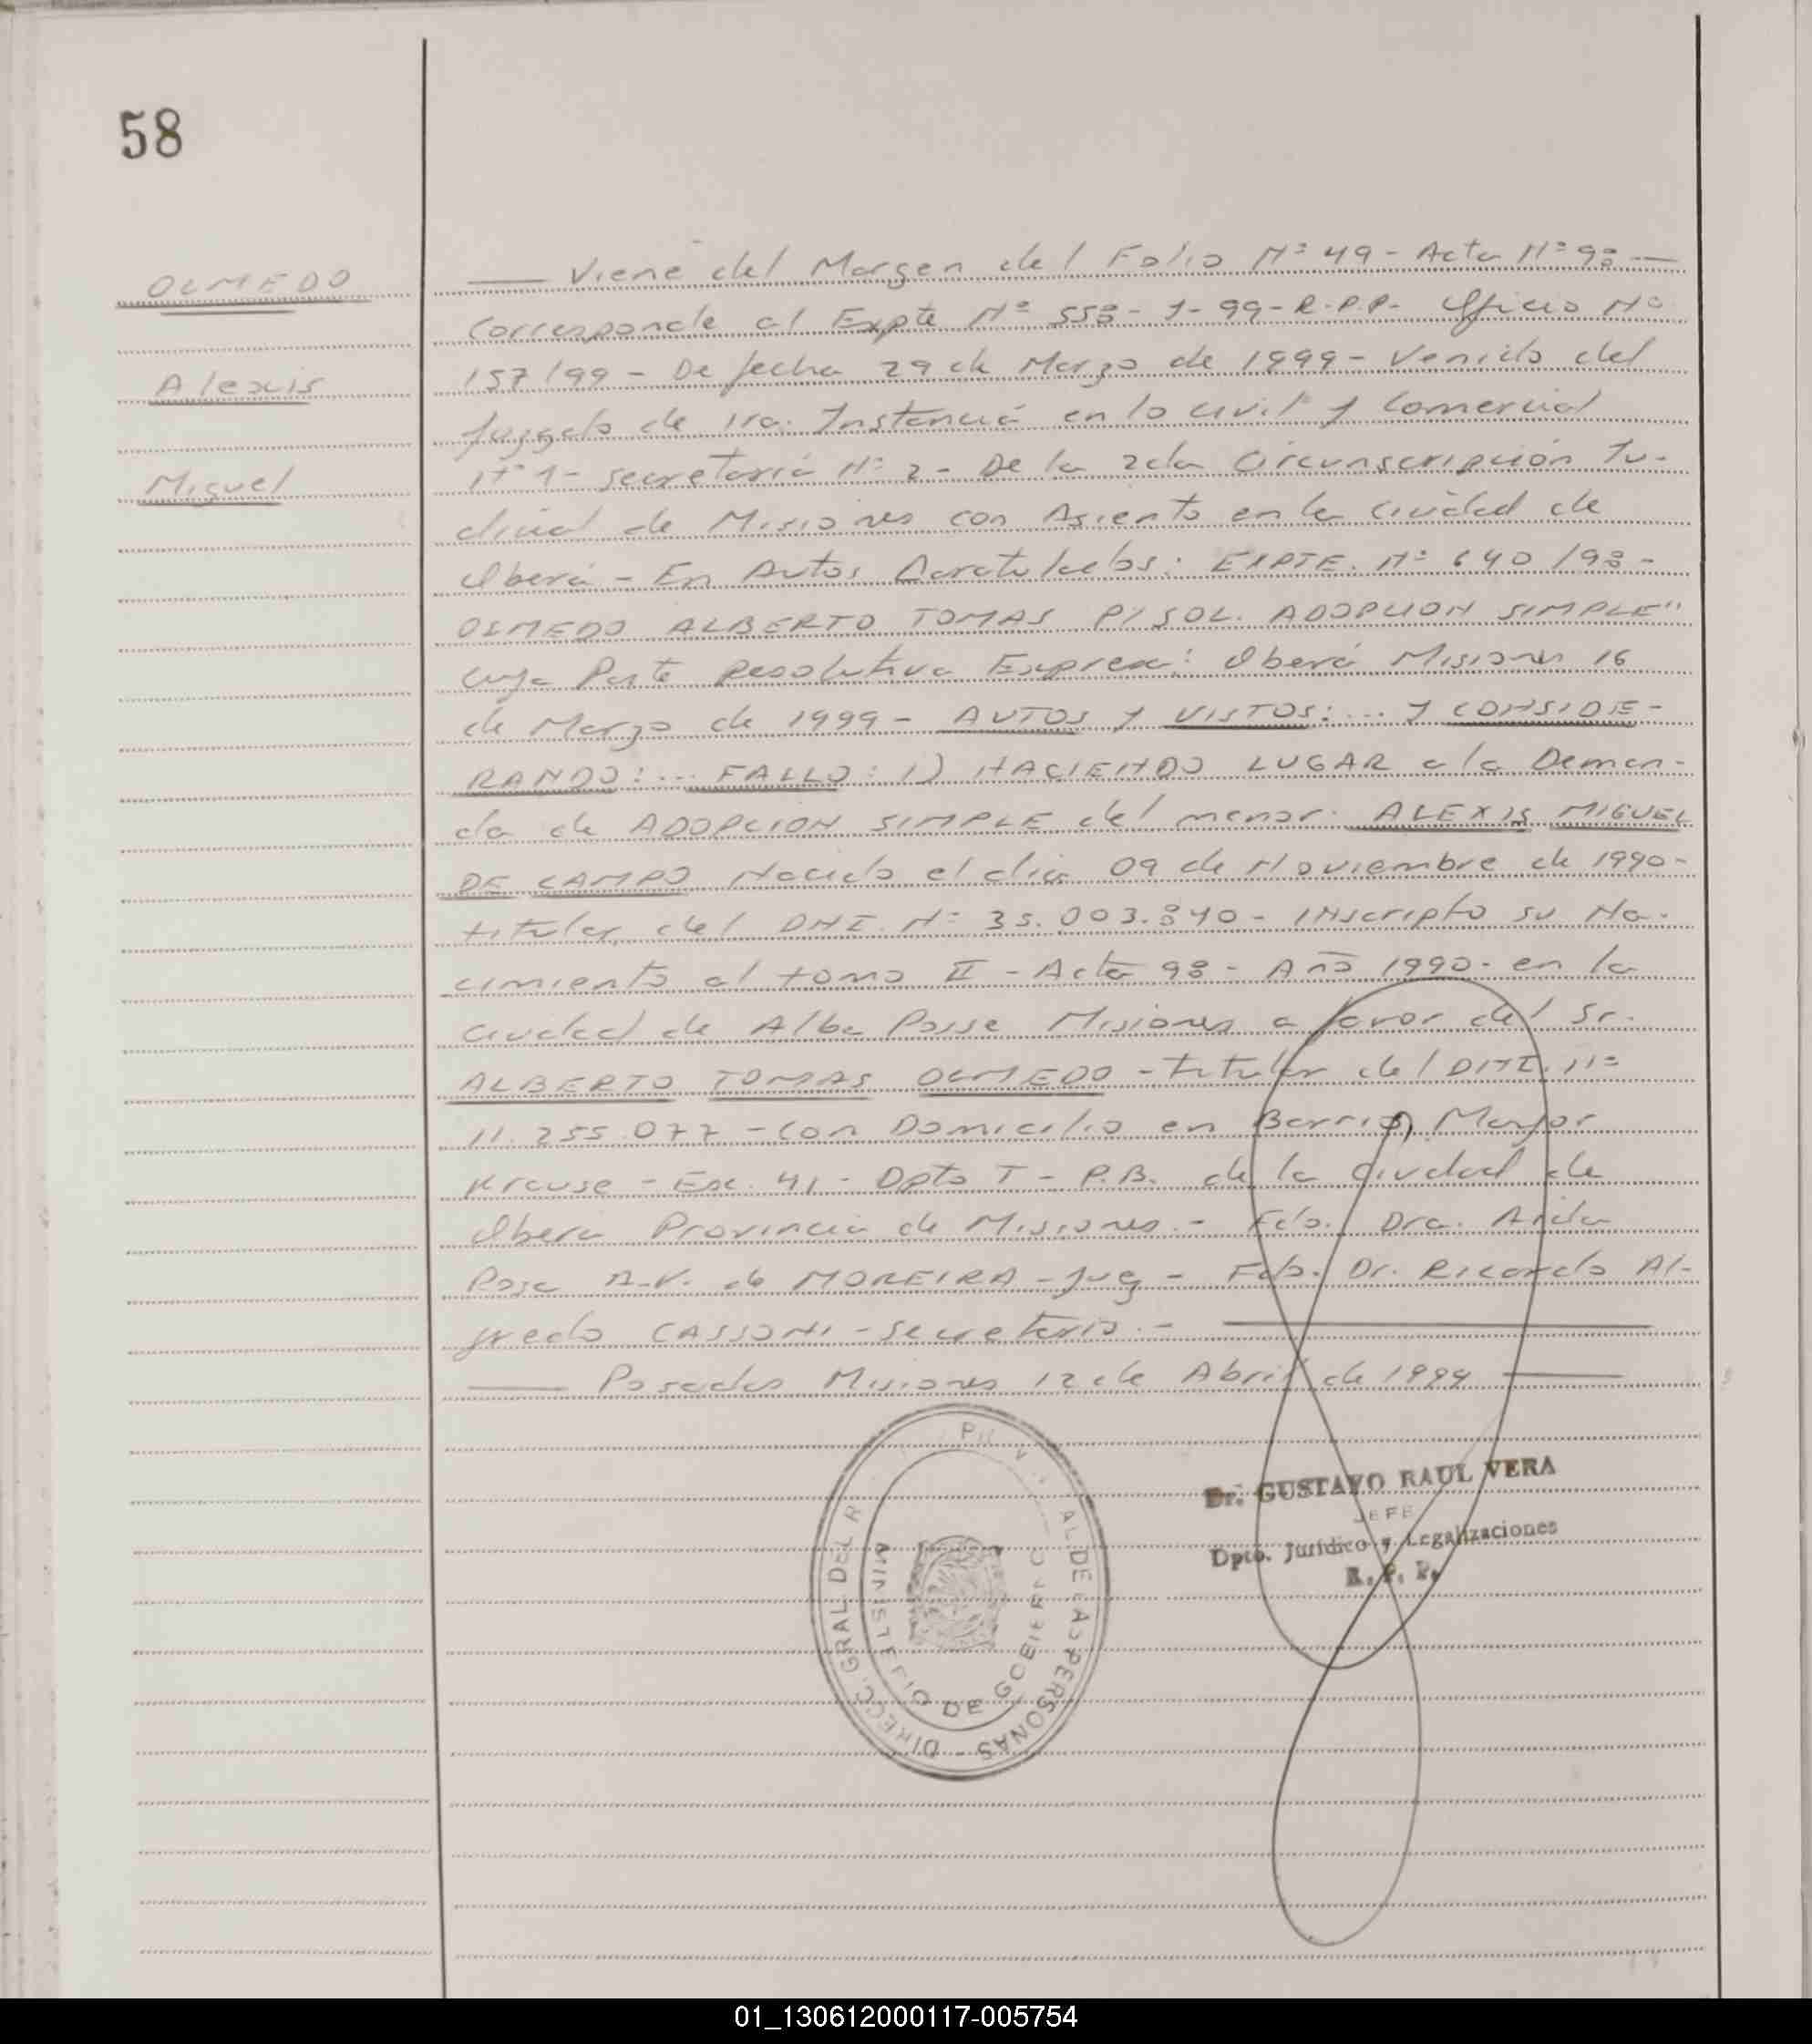 58
OLMEDO
Alexis
Miguel
—— Viene del Margen del Folio N° 49 - Acta N° 98 —
Corresponde al Expte N° 558 - J - 99 - R.P.P. - Oficio N°
157/99 - De fecha 29 de Marzo de 1999 - Venido del
Juzgado de 1ra. Instancia en lo Civil y Comercial
N° 1 - Secretaria N° 2 - De la 2da Circunscripción Ju-
dicial de Misiones con Asiento en la Ciudad de
Oberá - En Autos Caratulados: EXPTE. N° 640/98 -
OLMEDO ALBERTO TOMAS P/SOL. ADOPCION SIMPLE"
cuya Parte Resolutiva Expresa: Oberá Misiones 16
de Marzo de 1999 - AUTOS Y VISTOS: ... Y CONSIDE-
RANDO: ... FALLO: 1) HACIENDO LUGAR a la Deman-
da de ADOPCION SIMPLE del menor ALEXIS MIGUEL
DE CAMPO Nacido el dia 09 de Noviembre de 1990 -
titular del DNI. N° 35.003.840 - Inscripto su Na-
cimiento al tomo II - Acta 98 - Año 1990 - en la
Ciudad de Alba Posse Misiones a favor del Sr.
ALBERTO TOMAS OLMEDO - titular del DNI. N°
11.255.077 - Con Domicilio en Barrio Mayor
Krause - Esc. 41 - Dpto T - P.B. de la Ciudad de
Oberá Provincia de Misiones. - Fdo. Dra. Aida
Rosa N.V. de MOREIRA - Juez - Fdo. Dr. Ricardo Al-
fredo CASSONI - Secretario. - ——
—— Posadas Misiones 12 de Abril de 1999 ——
Dr. GUSTAVO RAUL VERA
JEFE
Dpto. Jurídico y Legalizaciones
R. P. P.
DIRECC. GRAL DEL R AL DE LAS PERSONAS -
MINISTERIO DE GOBIERNO
01_130612000117-005754